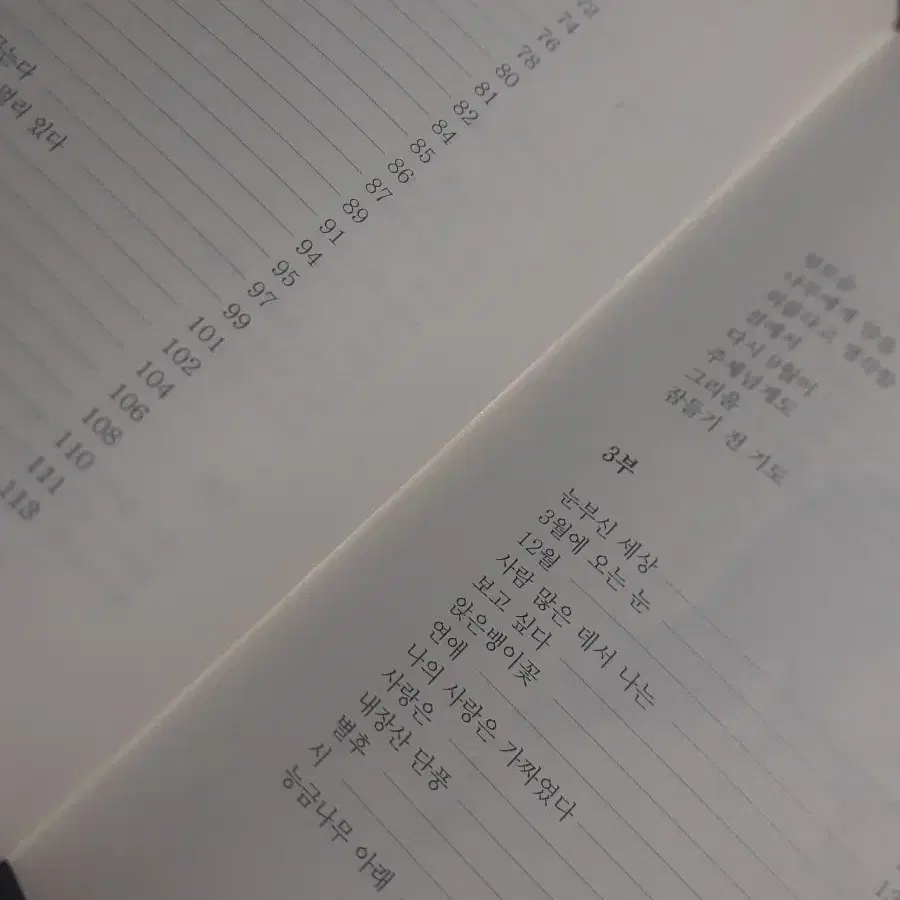 는다
멀리 있다
73
74
76
78
80
81
82
84
85
86
87
89
91
94
95
97
99
101
102
104
106
108
110
111
113
섬에서
다시 9월이
주제넘게도
그리움
잠들기 전 기도
3부
눈부신 세상
3월에 오는 눈
12월
사람 많은 데서 나는
보고 싶다
앉은뱅이꽃
연애
나의 사랑은 가짜였다
사랑은
내장산 단풍
별후
시
능금나무 아래